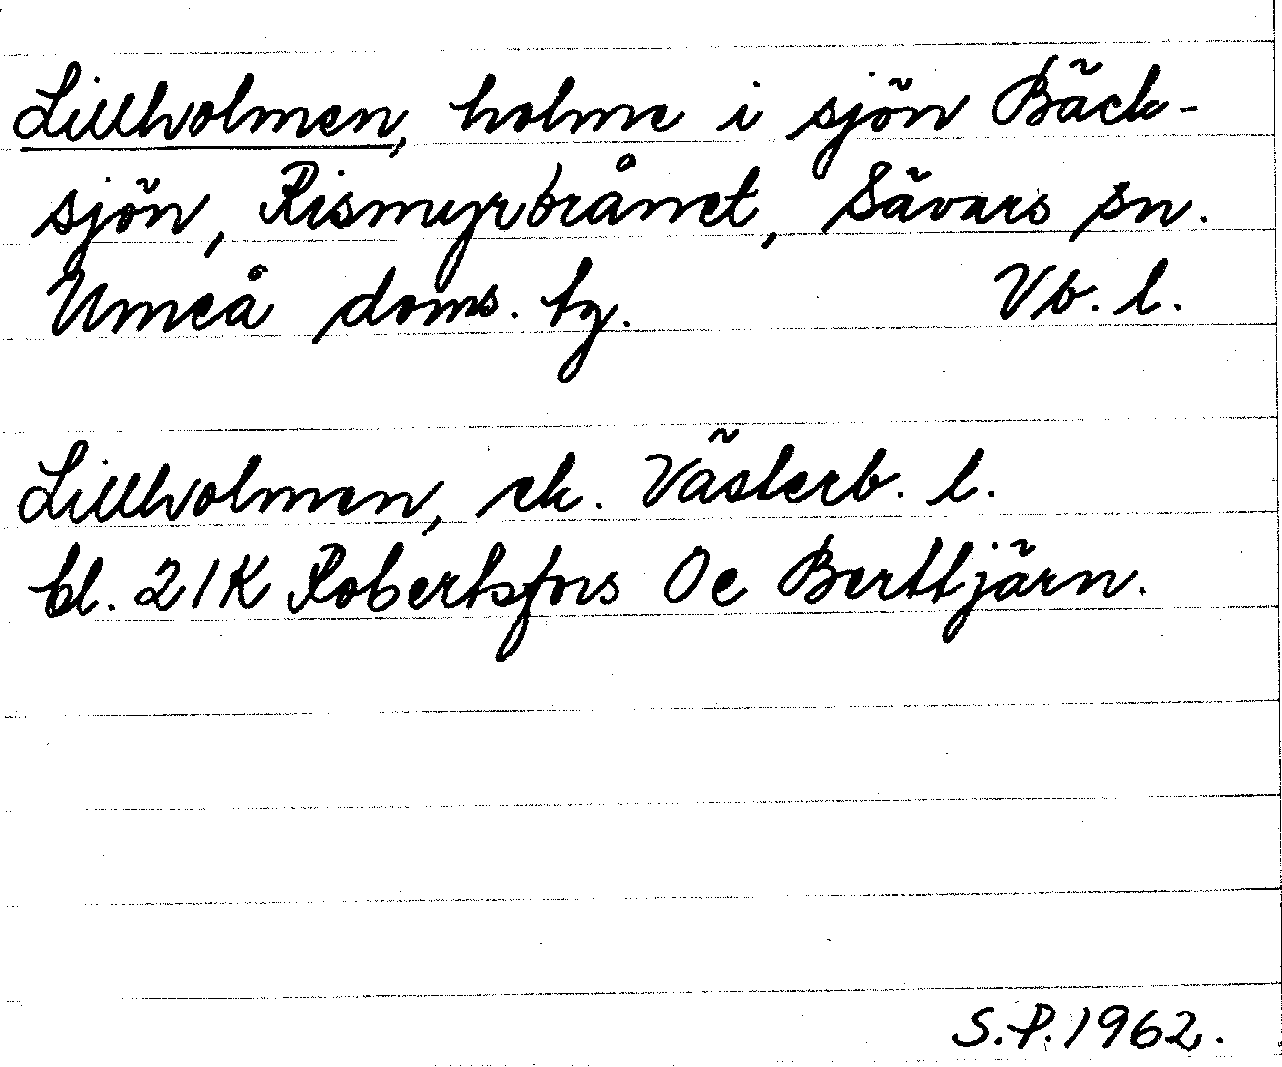 Lillholmen, holme i sjön Bäck-
sjön, Rismyrbrånet, Sävars sn.
Umeå doms. tg. Vb. l.
Lillholmen, ek. Västerb. l.
bl. 21K Robertsfors Oe Berttjärn.
S.P. 1962.